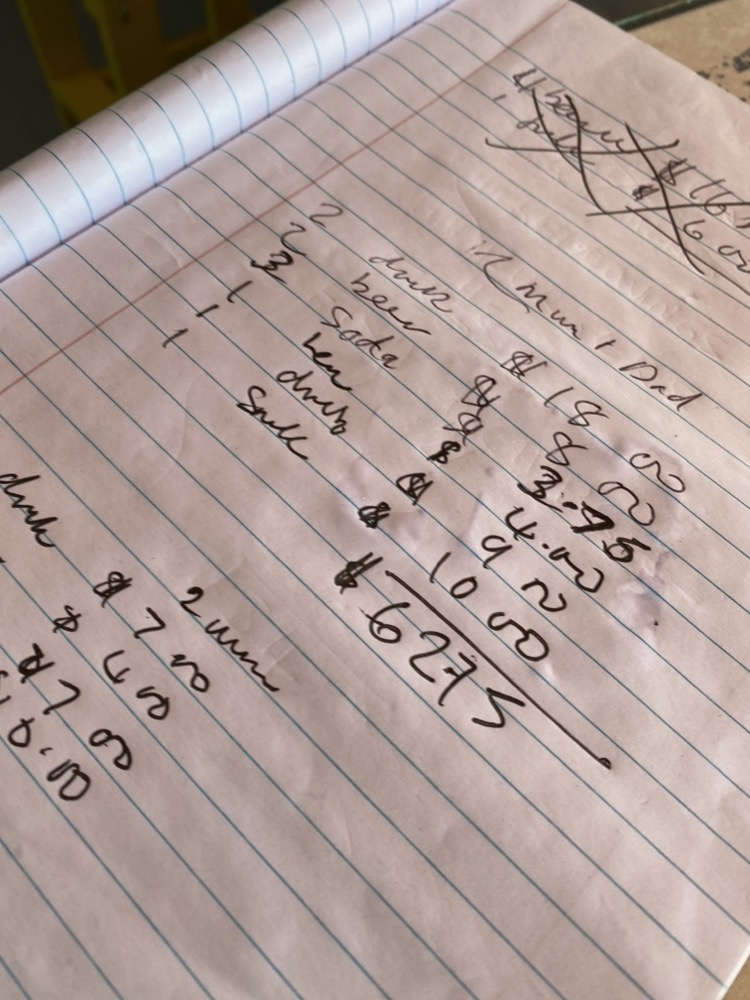 4 $ 16
$ 6 00
Mum + Dad
2 drink $ 18 00
2 beer $ 8 00
3 Soda $ 3.75
1 beer $ 4.00
1 drink $ 9 00
1 $ 10 00
$ 6275
2 mum
drink $ 7 00
$ 4 00
$ 7 00
10.00